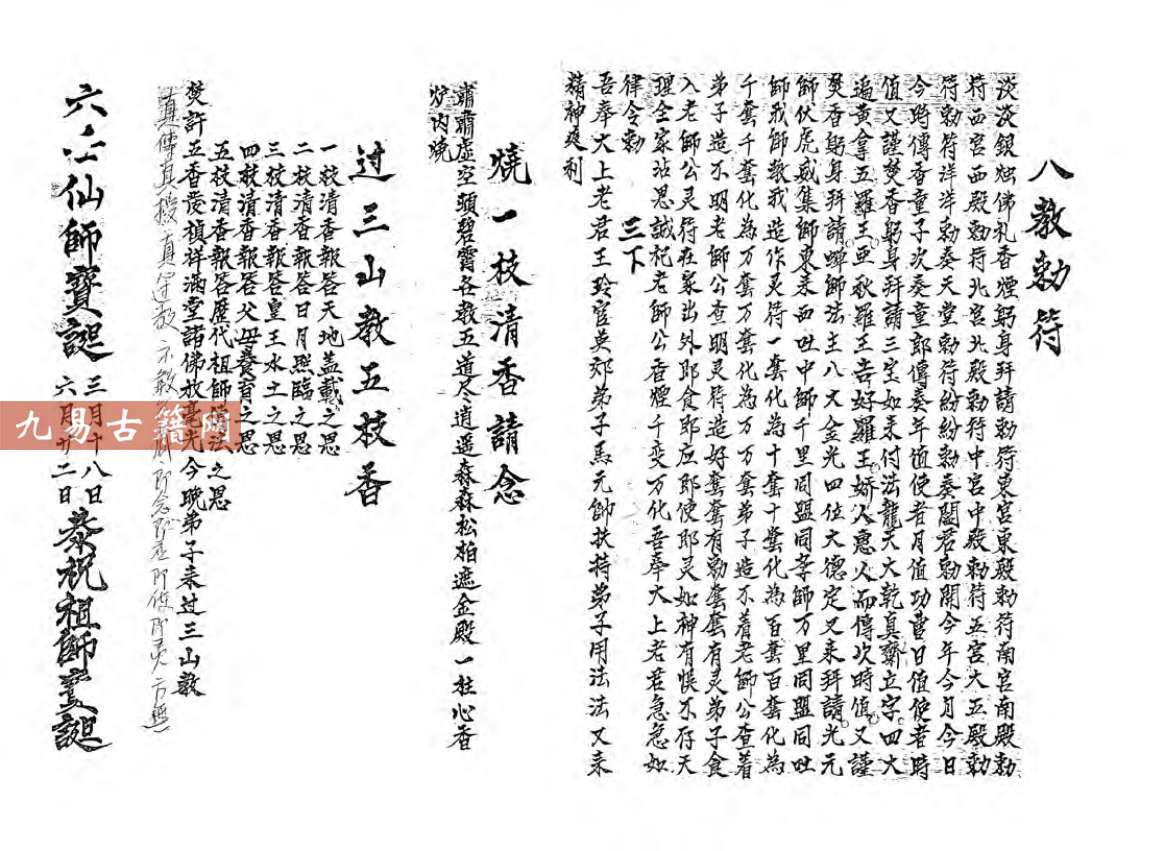 八教勅符
淡淡銀烛佛礼香煙躬身拜請勅符東宮東殿勅符南宮南殿勅
符西宮西殿勅符北宮北殿勅符中宮中殿勅符五宮大五殿勅
符勅符洋洋勅奏天堂勅符紛紛勅奏閻君勅開今年今月今日
今時傳香童子次奏童郎傳奏年值使者月值功曹日值使者時
值又謹焚香躬身拜請三宝如来付法龍天大乾真齋立字四大
追黄拿五羅王亜秋羅王吉好羅王娇人惠人而傳次時值又謹
焚香躬身拜請蟬師法主八丈金光四位大德定又来拜請光元
師伏虎威集師東来西吐中師千里同盟同孝師万里同盟同吐
師我師教我造作灵符一套化為十套十套化為百套百套化為
千套千套化為万套万套化為万万套弟子造不着老師公查着
弟子造不明老師公查明灵符造好套套有勅套套有灵弟子食
入老師公灵符在家出外即食即应即使即灵如神有悮不存天
理全家沾恩誠托老師公香煙千变万化吾奉大上老君急急如
律令勅 三下
吾奉大上老君王玲官英郊弟子馬元帥扶持弟子用法法又来
精神爽利
燒一枝清香請念
肅肅虛空頭碧霄各教五道尽逍遥森森松柏遮金殿一炷心香
炉内燒
过三山教五枝香
一枝清香報答天地盖載之恩
二枝清香報答日月照臨之恩
三枝清香報答皇王水土之恩
四枝清香報答父母養育之恩
五枝清香報答歷代祖師法之恩
焚許五香發禎祥滿堂諸佛放毫光今晚弟子来过三山教
真傳真授真
六仙師寶誕 三月十八日 六月廿二日 恭祝祖師宝誕
九易古籍网